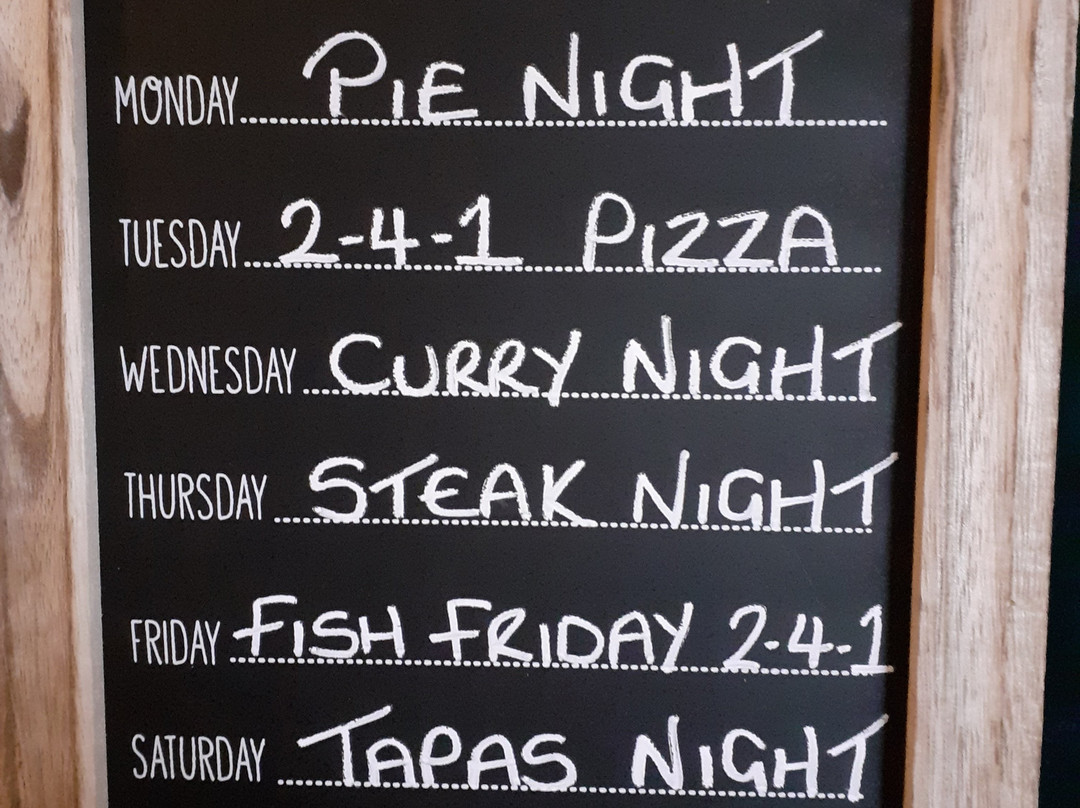 MONDAY.... PIE NIGHT
TUESDAY... 2-4-1 PIZZA
WEDNESDAY... CURRY NIGHT
THURSDAY ... STEAK NIGHT
FRIDAY ... FISH FRIDAY 2-4-1
SATURDAY ... TAPAS NIGHT